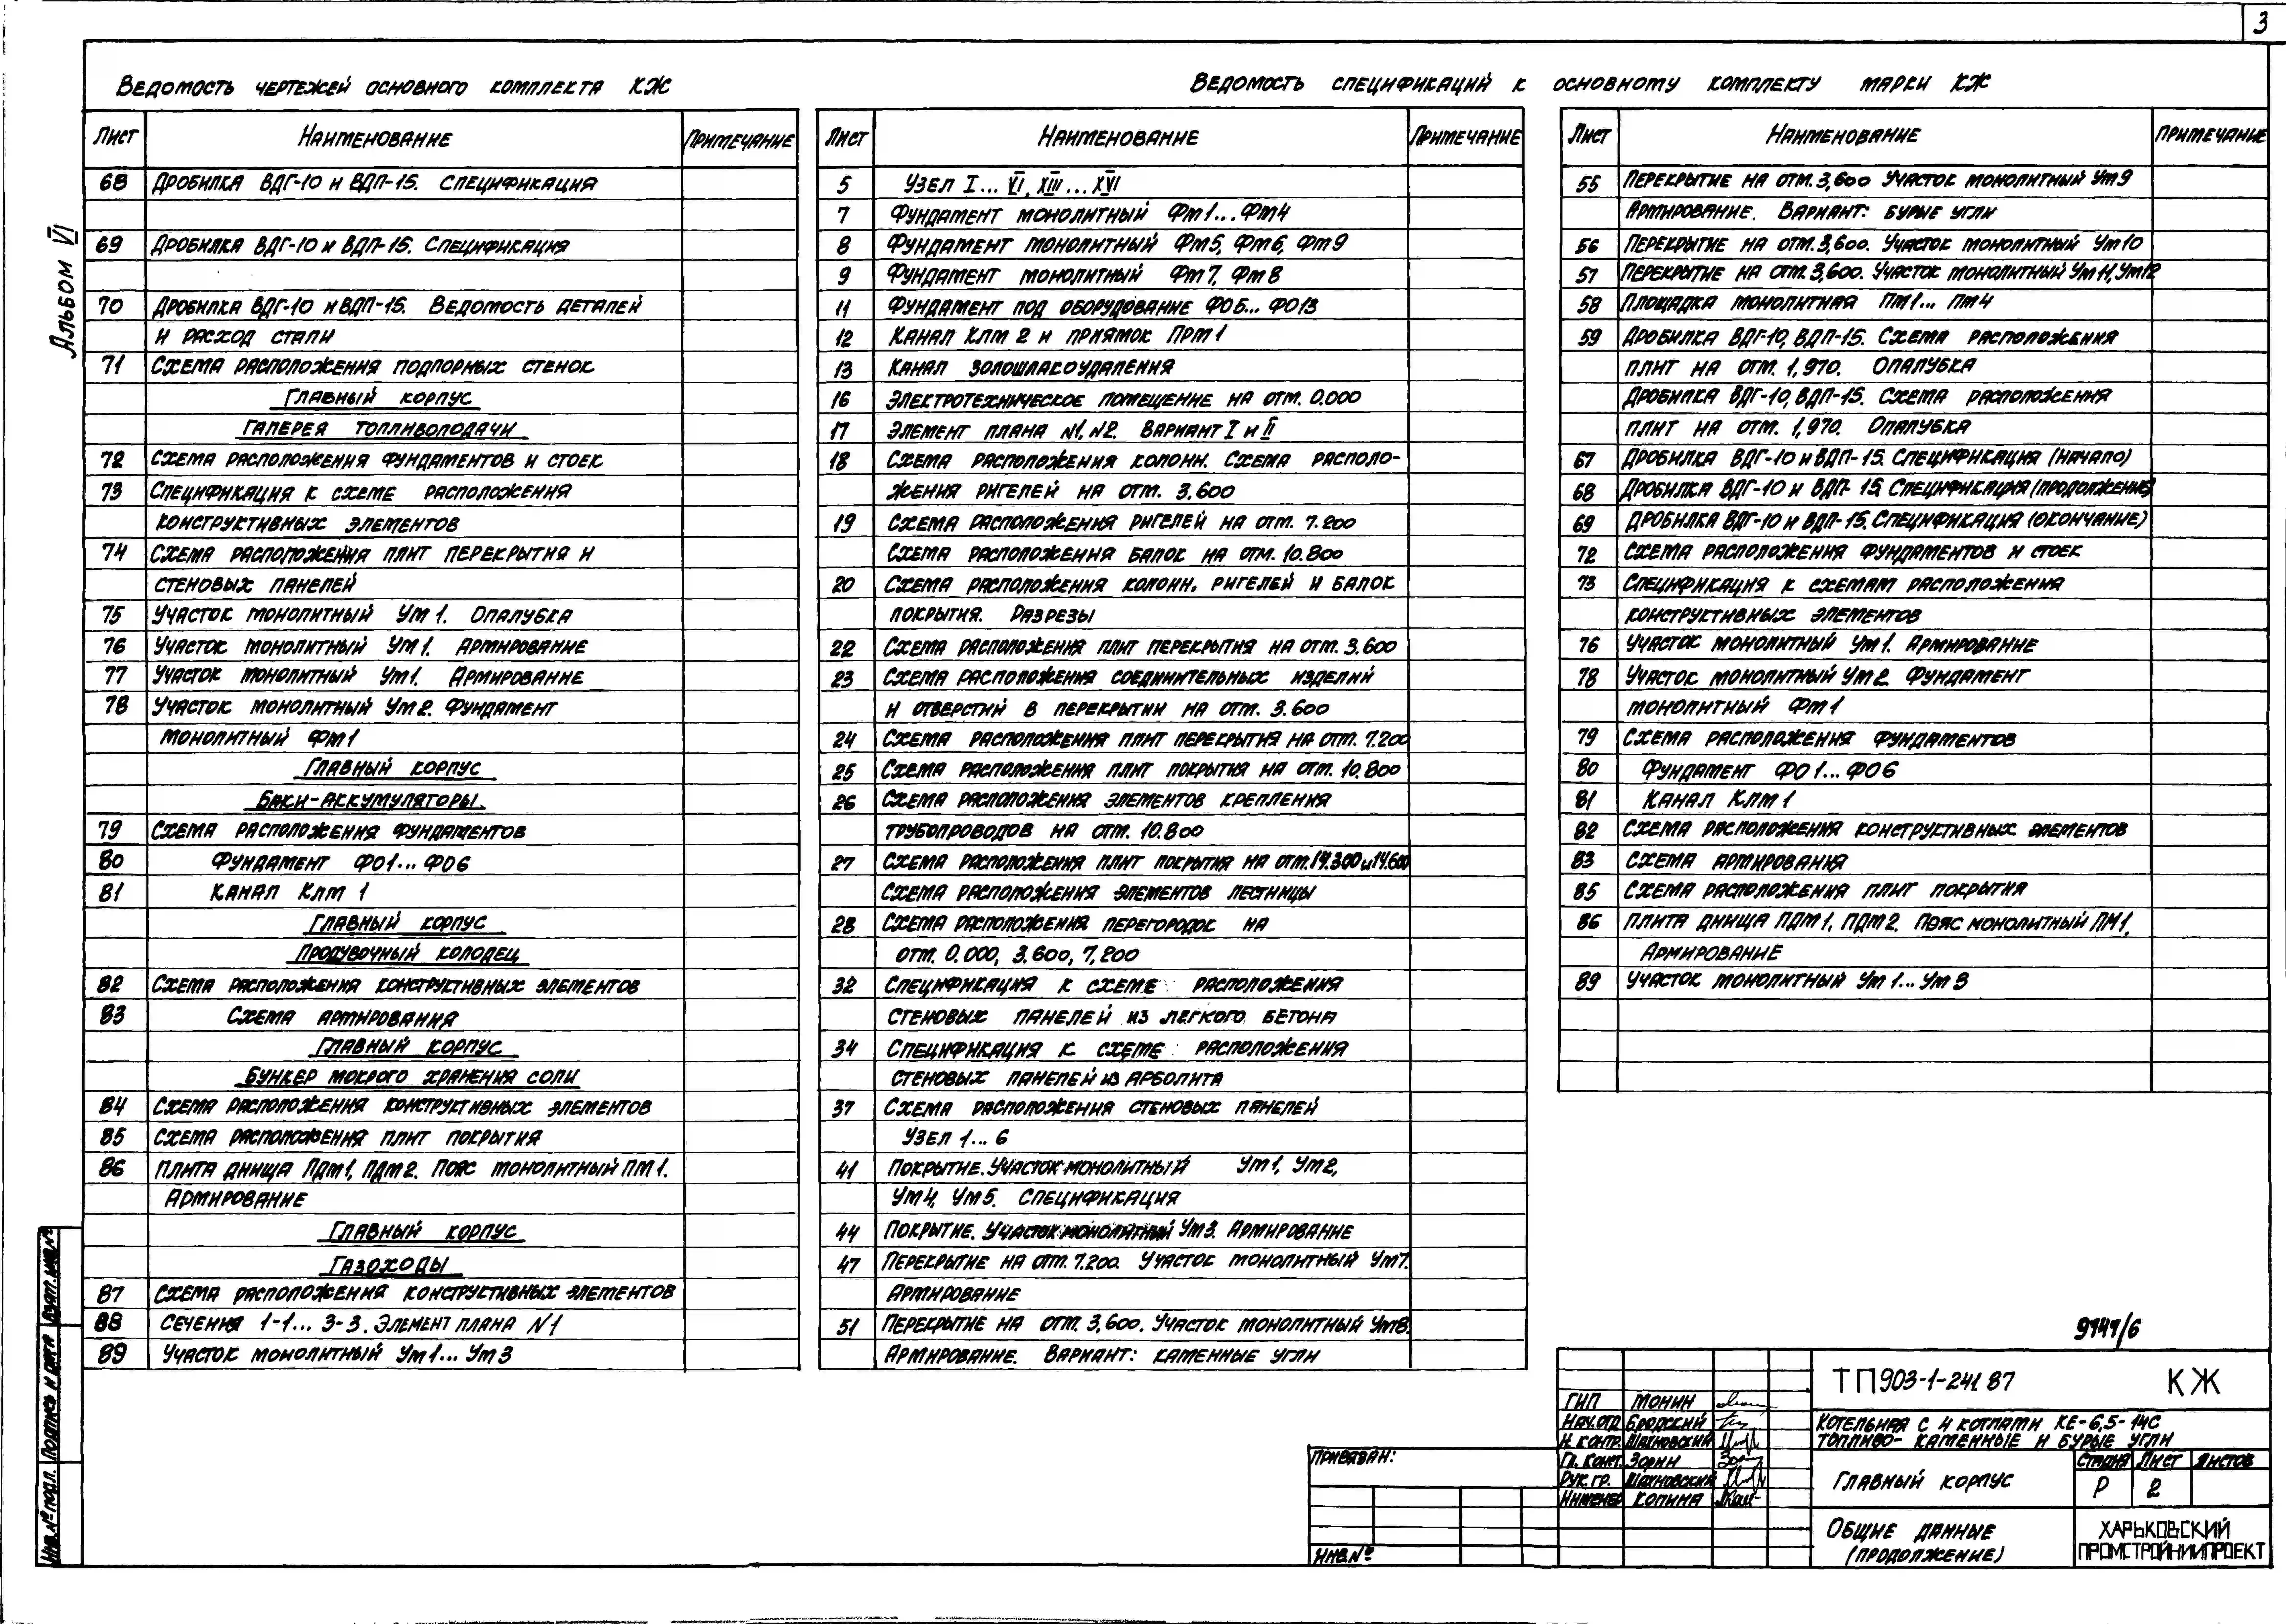 3
Альбом VI
Ведомость чертежей основного комплекта КЖ
Лист Наименование Примечание
68 Дробилка ВДГ-10 и ВДП-15. Спецификация
69 Дробилка ВДГ-10 и ВДП-15. Спецификация
70 Дробилка ВДГ-10 и ВДП-15. Ведомость деталей
и расход стали
71 Схема расположения подпорных стенок
Главный корпус
Галерея топливоподачи
72 Схема расположения фундаментов и стоек
73 Спецификация к схеме расположения
конструктивных элементов
74 Схема расположения плит перекрытия и
стеновых панелей
75 Участок монолитный Ум 1. Опалубка
76 Участок монолитный Ум 1. Армирование
77 Участок монолитный Ум1. Армирование
78 Участок монолитный Ум2. Фундамент
монолитный Фм1
Главный корпус
Баки-аккумуляторы.
79 Схема расположения фундаментов
80 Фундамент ФО1... ФО6
81 Канал Клм 1
Главный корпус
Продувочный колодец
82 Схема расположения конструктивных элементов
83 Схема армирования
Главный корпус
Бункер мокрого хранения соли
84 Схема расположения конструктивных элементов
85 Схема расположения плит покрытия
86 Плита днища ПДм1, ПДм2. Пояс монолитный ПМ1.
Армирование
Главный корпус
Газоходы
87 Схема расположения конструктивных элементов
88 Сечения 1-1... 3-3. Элемент плана N1
89 Участок монолитный Ум1... Ум3
Ведомость спецификаций к основному комплекту марки КЖ
Лист Наименование Примечание
5 Узел I... VI, XIII... XVI
7 Фундамент монолитный Фм1... Фм4
8 Фундамент монолитный Фм5, Фм6, Фм9
9 Фундамент монолитный Фм7, Фм8
11 Фундамент под оборудование ФО5... ФО13
12 Канал Клм 2 и приямок Прм 1
13 Канал золошлакоудаления
16 Электротехническое помещение на отм. 0.000
17 Элемент плана N1, N2. Вариант I и II
18 Схема расположения колонн. Схема располо-
жения ригелей на отм. 3.600
19 Схема расположения ригелей на отм. 7.200
Схема расположения балок на отм. 10.800
20 Схема расположения колонн, ригелей и балок
покрытия. Разрезы
22 Схема расположения плит перекрытия на отм. 3.600
23 Схема расположения соединительных изделий
и отверстий в перекрытии на отм. 3.600
24 Схема расположения плит перекрытия на отм. 7.200
25 Схема расположения плит покрытия на отм. 10.800
26 Схема расположения элементов крепления
трубопроводов на отм. 10.800
27 Схема расположения плит покрытия на отм.14.300и14.600
Схема расположения элементов лестницы
28 Схема расположения перегородок на
отм. 0.000, 3.600, 7,200
32 Спецификация к схеме расположения
стеновых панелей из легкого бетона
34 Спецификация к схеме расположения
стеновых панелей из арболита
37 Схема расположения стеновых панелей
Узел 1... 6
41 Покрытие. Участок монолитный Ум1, Ум2,
Ум4, Ум5. Спецификация
44 Покрытие. Участок монолитный Ум3. Армирование
47 Перекрытие на отм. 7.200. Участок монолитный Ум7.
Армирование
51 Перекрытие на отм. 3,600. Участок монолитный Ум8.
Армирование. Вариант: каменные угли
Лист Наименование Примечание
55 Перекрытие на отм. 3,600 Участок монолитный Ум9
Армирование. Вариант: бурые угли
56 Перекрытие на отм. 3,600. Участок монолитный Ум10
57 Перекрытие на отм. 3,600. Участок монолитный Ум 11, Ум12
58 Площадка монолитная Пм1... Пм4
59 Дробилка ВДГ-10, ВДП-15. Схема расположения
плит на отм. 1,970. Опалубка
Дробилка ВДГ-10, ВДП-15. Схема расположения
плит на отм. 1,970. Опалубка
67 Дробилка ВДГ-10 и ВДП-15. Спецификация (начало)
68 Дробилка ВДГ-10 и ВДП-15. Спецификация (продолжение)
69 Дробилка ВДГ-10 и ВДП-15. Спецификация (окончание)
72 Схема расположения фундаментов и стоек
73 Спецификация к схемам расположения
конструктивных элементов
76 Участок монолитный Ум 1. Армирование
78 Участок монолитный Ум 2. Фундамент
монолитный Фм1
79 Схема расположения фундаментов
80 Фундамент ФО 1... ФО6
81 Канал Клм 1
82 Схема расположения конструктивных элементов
83 Схема армирования
85 Схема расположения плит покрытия
86 Плита днища ПДм1, ПДм2. Пояс монолитный ПМ1.
Армирование
89 Участок монолитный Ум 1... Ум 3
9141/6
ТП903-1-241.87 КЖ
ГИП Монин
Нач.отд Бродский
Н. контр. Шахновский
Гл. конст. Зорин
Рук. гр. Шахновский
Инженер Копина
Котельная с 4 котлами КЕ-6,5-14С
Топливо- каменные и бурые угли
Главный корпус
Стадия Лист Листов
Р 2
Общие данные
(продолжение)
ХАРЬКОВСКИЙ
ПРОМСТРОЙНИИПРОЕКТ
Привязан:
Инв.№
Инв.№ подл. Подпись и дата Взам. инв.№